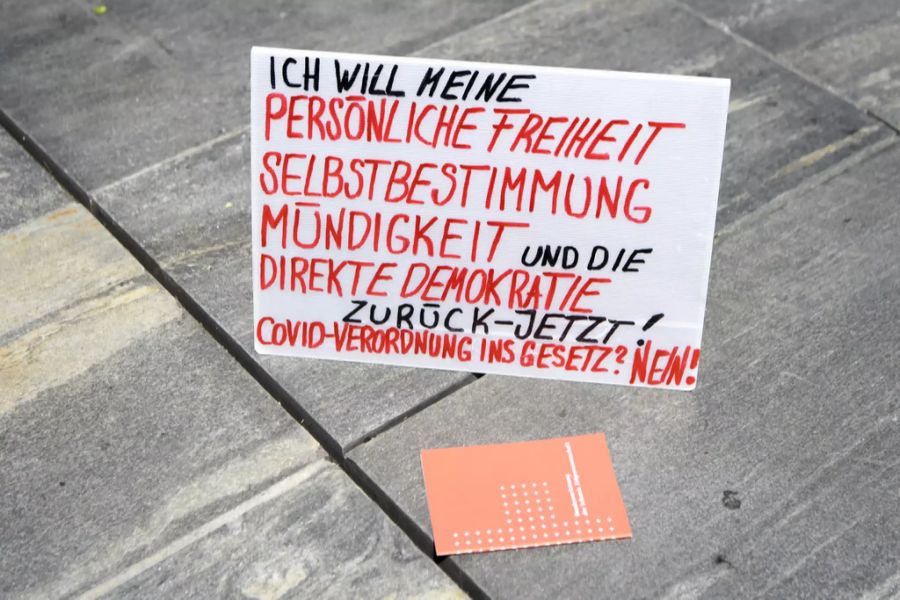 ICH WILL MEINE
PERSÖNLICHE FREIHEIT
SELBSTBESTIMMUNG
MÜNDIGKEIT UND DIE
DIREKTE DEMOKRATIE
ZURÜCK-JETZT!
COVID-VERORDNUNG INS GESETZ? NEIN!
Bundesverfassung
der Schweiz. Eidgenossenschaft